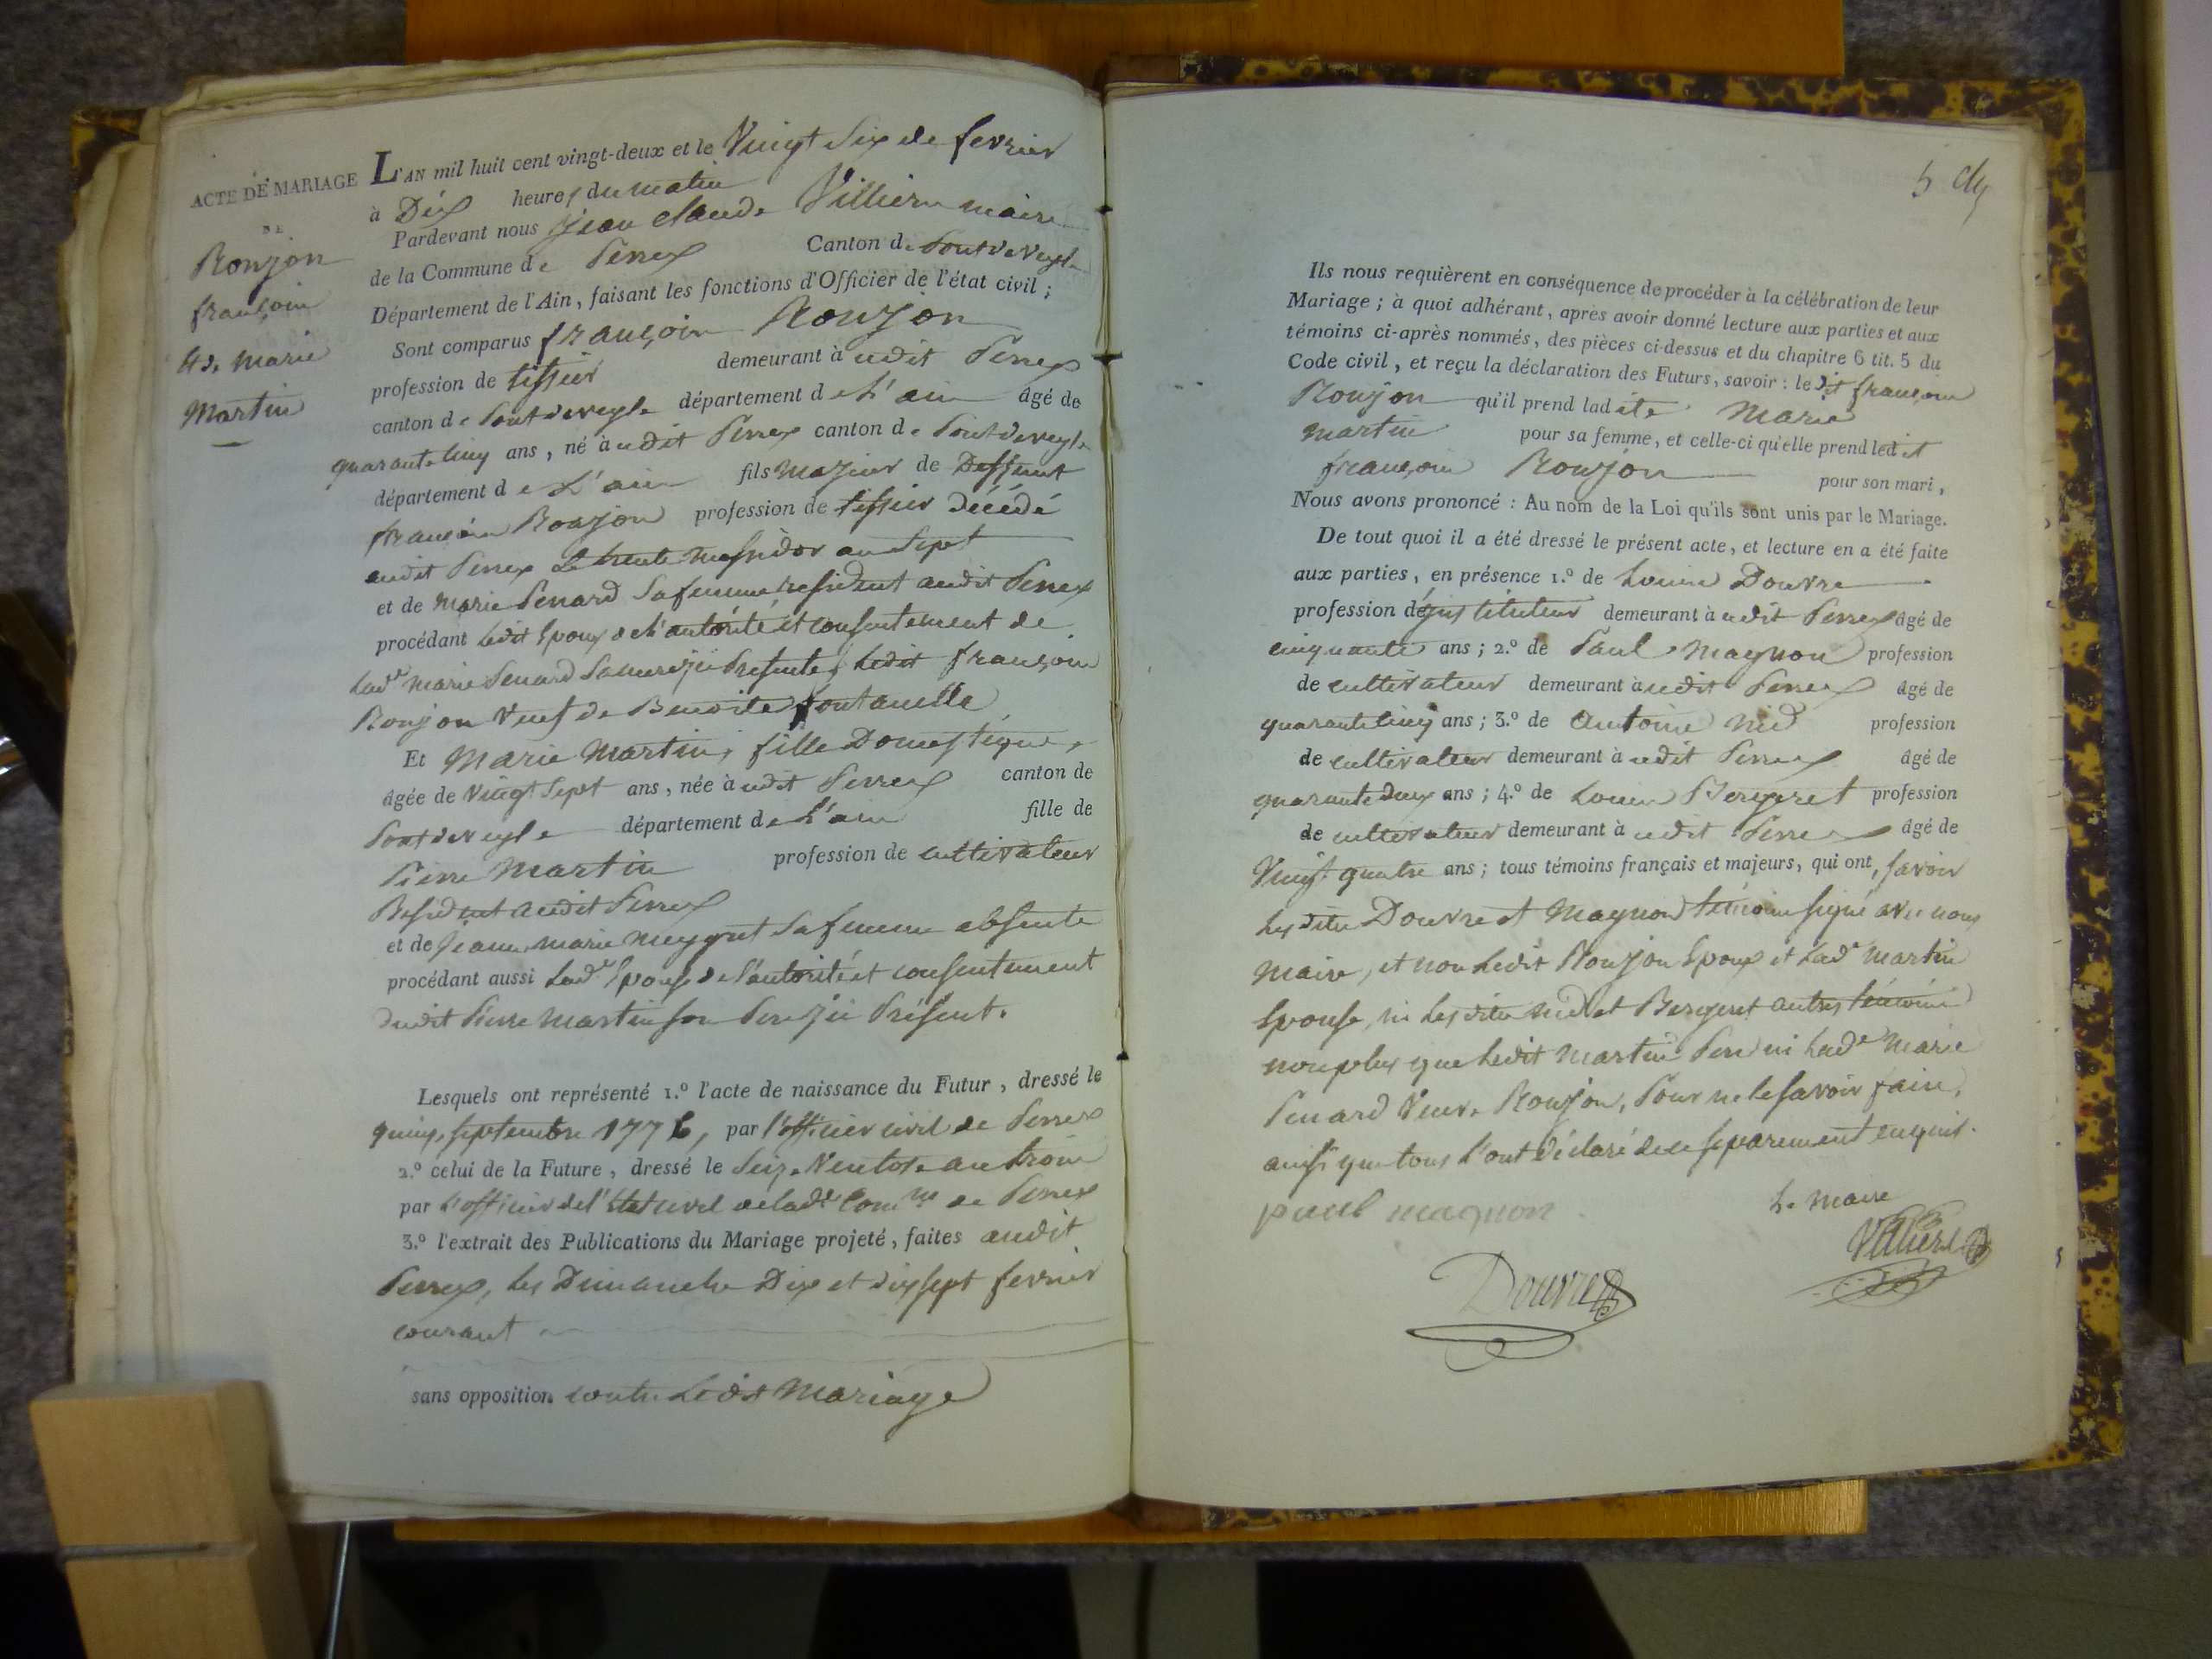 ACTE DE MARIAGE
DE
Ronjon
françois
Et de marie
Martin
L'AN mil huit cent vingt-deux et le Vingt Six de fevrier
à Dix heures du matin
Pardevant nous jean claude Villiern maire
de la Commune de Perrex Canton de Pontdeveyle
Département de l'Ain, faisant les fonctions d'Officier de l'état civil ;
Sont comparus françois Ronjon
profession de tissier demeurant à udit Perrex
canton de Pontdeveyle département de L'ain âgé de
quarante cinq ans, né à udit Perrex canton de Pontdeveyle
département de L'ain fils majeur de Deffunt
françois Ronjon profession de tissier Décédé
audit Perrex Le trente messidor an Sept
et de marie Penard Sa femme residente audit Perrex
procédant Ledit Epoux de l'autorité et consentement de
lade marie Penard Sa mere ici Presente, Ledit françois
Ronjon Veuf de Benoite fontanelle
Et Marie Martin, fille Domestique,
âgée de Vingt Sept ans, née à udit Perrex canton de
Pontdeveyle département de L'ain fille de
Pierre Martin profession de cultivateur
Resident audit Perrex
et de jeanne marie meygret Sa femme absente
procédant aussi Lade Epouse de l'autorité et consentement
dudit Pierre Martin son Pere ici Présent.
Lesquels ont représenté 1.º l'acte de naissance du Futur, dressé le
quinze septembre 1776, par l'officier civil de Perrex
2.º celui de la Future, dressé le Seize Ventose an trois
par L'officier de l'Etat civil de lade Comne de Perrex
3.º l'extrait des Publications du Mariage projeté, faites audit
Perrex, les Dimanche Dix et dix sept fevrier
courant
sans opposition contre Ledit Mariage
5
Ils nous requièrent en conséquence de procéder à la célébration de leur
Mariage ; à quoi adhérant, après avoir donné lecture aux parties et aux
témoins ci-après nommés, des pièces ci-dessus et du chapitre 6 tit. 5 du
Code civil, et reçu la déclaration des Futurs, savoir : le dit françois
Ronjon qu'il prend ladite Marie
Martin pour sa femme, et celle-ci qu'elle prend ledit
françois Ronjon pour son mari,
Nous avons prononcé : Au nom de la Loi qu'ils sont unis par le Mariage.
De tout quoi il a été dressé le présent acte, et lecture en a été faite
aux parties, en présence 1.º de Louis Douvre
profession d'instituteur demeurant à udit Perrex âgé de
cinquante ans ; 2.º de Paul Magnon profession
de cultivateur demeurant à udit Perrex âgé de
quarante cinq ans ; 3.º de Antoine Nid profession
de cultivateur demeurant à udit Perrex âgé de
quarante deux ans ; 4.º de Louis Bergeret profession
de cultivateur demeurant à udit Perrex âgé de
Vingt quatre ans ; tous témoins français et majeurs, qui ont, savoir
Les dits Douvre et Magnon témoins signé avec nous
maire, et non Ledit Ronjon Epoux et Lade Martin
Epouse, ni Les dits nid et Bergeret autres témoins
non plus que Ledit Martin Pere ni Lade Marie
Penard Veuve Ronjon, Pour ne le savoir faire,
ainsi que tous l'ont déclaré de ce separement enquis.
paul magnon Le Maire
Villiern
Douvre